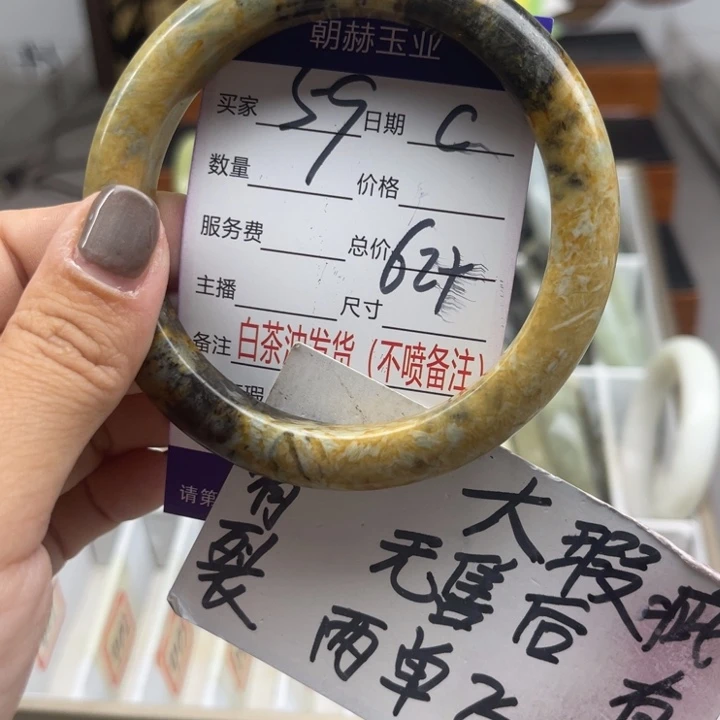 朝赫玉业
买家 59 日期 C
数量 价格
服务费 总价 624
主播 尺寸
备注 白茶油发货（不喷备注）
瑕
请第
有裂
大瑕疵
无售后
两单
有